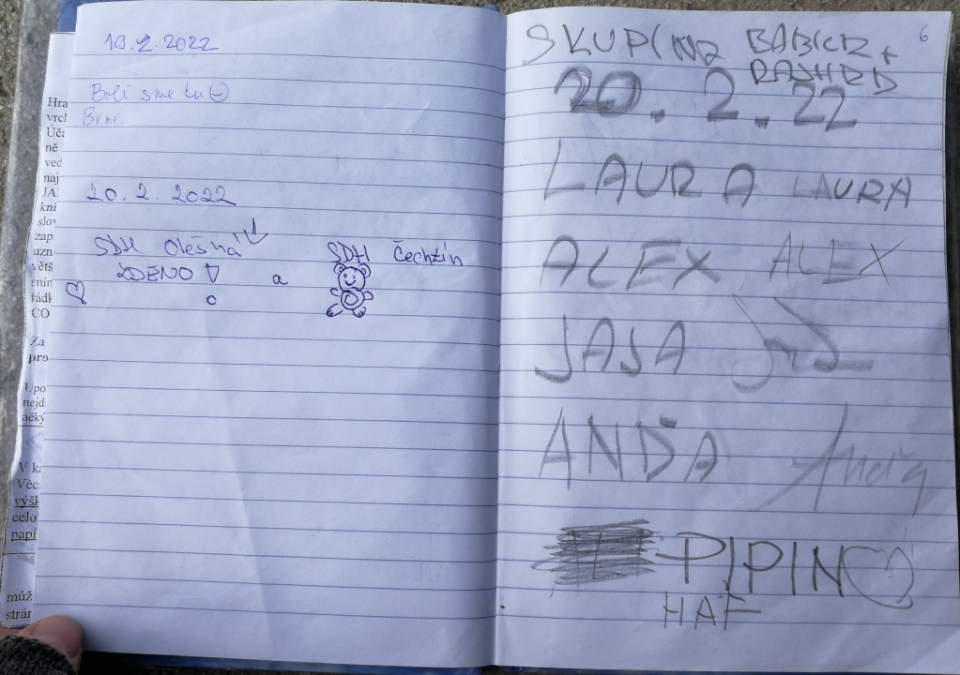 19.2.2022
Boli sme tu
Brno
20. 2. 2022
SDH Olešná
ZDENO
a
SDH Čechtín
Hra
vrcl
Úča
ně
ved
naj
JA
kni
slov
zap
uzn
větš
sním
řádk
CO
Za
pro
Upo
nejd
V k
Věc
výšk
celo
papí
můž
strár
6
SKUPINA BABICE +
20. 2. 22
LAURA LAURA
ALEX ALEX
JAJA
ANĎA Anďa
PIPIN
HAF